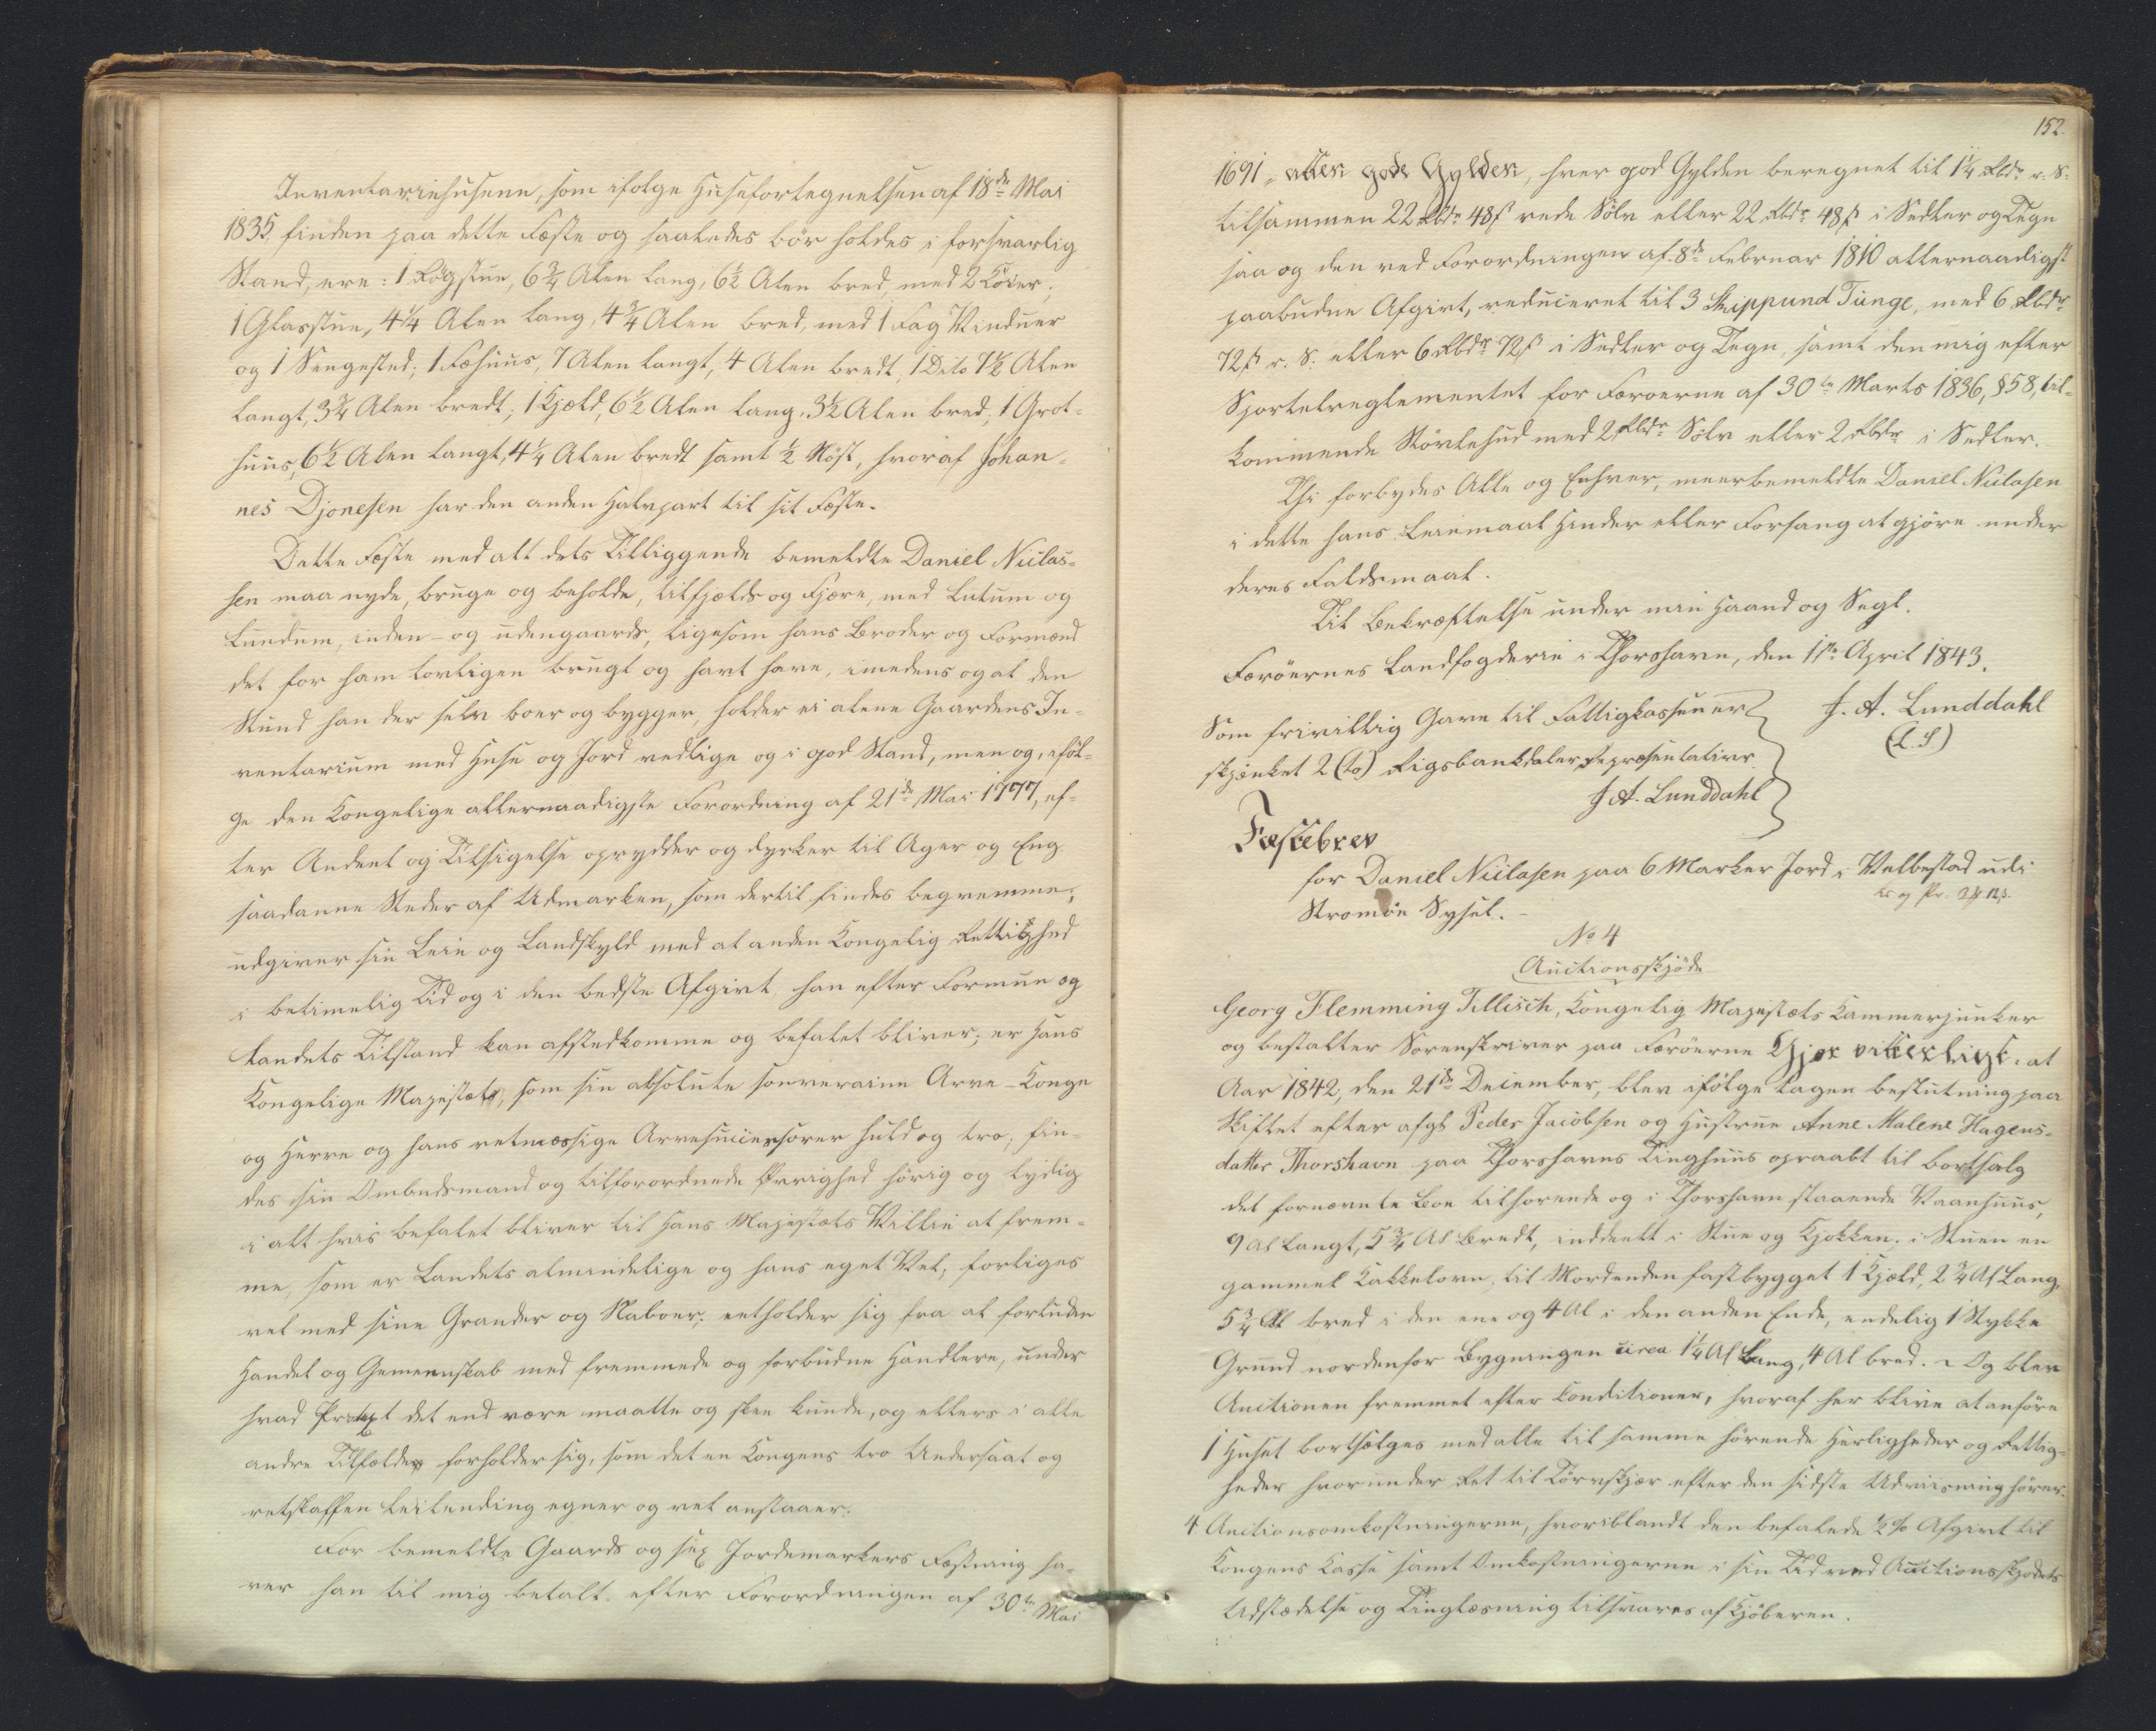 Inventariehusene, som ifølge Husefortegnelsen af 18de Mai
1835 finden paa dette Fæste og saaledes bør holdes i forsvarlig
Stand, ere: 1 Røgstue, 6 3/4 Alen lang, 6 1/2 Alen bred, med 2 Køier;
1 Glasstue, 4 1/4 Alen lang, 4 3/4 Alen bred, med 1 Fag Vinduer
og 1 Sengested; 1 Fæhuus, 7 Alen langt, 4 Alen bredt, 1 Dito 7 1/2 Alen
langt, 3 3/4 Alen bredt; 1 Hjeld, 6 1/2 Alen lang, 3 1/2 Alen bred; 1 Grot-
huus, 6 1/2 Alen langt, 4 1/4 Alen bredt samt 1/2 Nøst, hvoraf Johan-
nes Djonesen har den anden Halvpart til sit Fæste.
Dette Fæste med alt dets Tilliggende bemeldte Daniel Niclas-
sen maa nyde, bruge og beholde, tilfjelds og Fjære, med Lutum og
Lundum, inden- og udengaards, ligesom hans Broder og Formænd
det for ham lovligen brugt og havt have, imedens og al den
Stund han der selv boer og bygger, holder ei alene Gaardens In-
ventarium med Huse og Jord vedlige og i god Stand, men og, iføl-
ge den Kongelige allernaadigste Forordning af 21de Mai 1777, ef-
ter Andeel og Tilsigelse oprydder og dyrker til Ager og Eng
saadanne Steder af Udmarken, som dertil findes begvemme;
udgiver sin Leie og Landskyld med al anden Kongelig Rettighed
i betimelig Tid og i den bedste Afgivt, han efter Formue og
Landets Tilstand kan afstedkomme og befalet bliver; er Hans
Kongelige Majestæt, som sin absolute souveraine Arve-Konge
og Herre og hans retmæssige Arvesuccessorer huld og tro; fin-
des sin Ombudsmand og tilforordnede Øvrighed hørig og lydig
i alt hvis befalet bliver til Hans Majestæts Villie at frem-
me, som er Landets almindelige og hans eget Vel; forliges
vel med sine Grander og Naboer; entholder sig fra al forbuden
Handel og Gemeenskab med fremmede og forbudne Handlere, under
hvad Prætext det end være maatte og skee kunde, og ellers i alle
andre Tilfælde forholder sig, som det en Kongens tro Undersaat og
retskaffen Leilending egner og vel anstaaer.
For bemeldte Gaards og sex Jordemarkers Fæstning ha-
ver han til mig betalt efter Forordningen af 30te Mai
152.
1691, atten gode Gylden, hver god Gylden beregnet til 1 1/4 Rbdr r. S.
tilsammen 22 Rbdr 48 ß rede Sølv eller 22 Rbdr 48 ß i Sedler og Tegn
saa og den ved Forordningen af 8de Februar 1810 allernaadigst
paabudne Afgivt, reduceret til 3 Skippund Tunge, med 6 Rbdr
72 ß r. S. eller 6 Rbdr 72 ß i Sedler og Tegn, samt den mig efter
Sportelreglementet for Færøerne af 30te Marts 1836, § 58, til-
kommende Støvlehud med 2 Rbdr Sølv eller 2 Rbdr i Sedler.
Thi forbydes Alle og Enhver, meerbemeldte Daniel Niclasen
i dette hans Leiemaal Hinder eller Forfang at gjøre under
deres Faldsmaal.
Til Bekræftelse under min Haand og Segl.
Færøernes Landfogderie i Thorshavn, den 1ste April 1843.
J. A. Lunddahl
(L.S.)
Som frivillig Gave til Fattigkassen er
skjenket 2 (to) Rigsbankdaler Repræsentativer
J. A. Lunddahl
Fæstebrev
for Daniel Niclasen paa 6 Marker Jord i Velbestad udi
Strømøe Sysel.
No 4
Auctionsskjøde
Georg Flemming Tillisch, Kongelig Majestæts Kammerjunker
og bestalter Sorenskriver paa Færøerne Gjør vitterligt: at
Aar 1842, den 21de December, blev ifølge tagen beslutning paa
Skiftet efter afgl Peder Jacobsen og Hustrue Anne Malene Hagens-
datter Thorshavn paa Thorshavns Tinghuus opraabt til bortsalg
det fornævnte Boe tilhørende og i Thorshavn staaende Vaanhuus,
9 Al langt, 5 3/4 Al bredt, inddeelt i Stue og Kjøkken; i Stuen en
gammel Kakkelovn; til Nordenden fastbygget 1 Hjeld, 2 3/4 Al lang,
5 3/4 Al bred i den ene og 4 Al i den anden Ende, endelig 1 Stykke
Grund nordenfor Bygningen circa 1 1/4 Al lang, 4 Al bred. Og blev
Auctionen fremmet efter Conditioner, hvoraf her blive at anføre
1 Huset bortsælges med alle til samme hørende Herligheder og Rettig-
heder hvorunder Ret til Tørveskjær efter den sidste Udviisning hører.
4 Auctionsomkostningerne, hvoriblandt den befalede 1/2 % Afgivt til
Kongens Casse samt Omkostningerne i sin Tid ved Auctionsskjødets
Udstædelse og Tinglæsning tilsvares af Kjøberen.